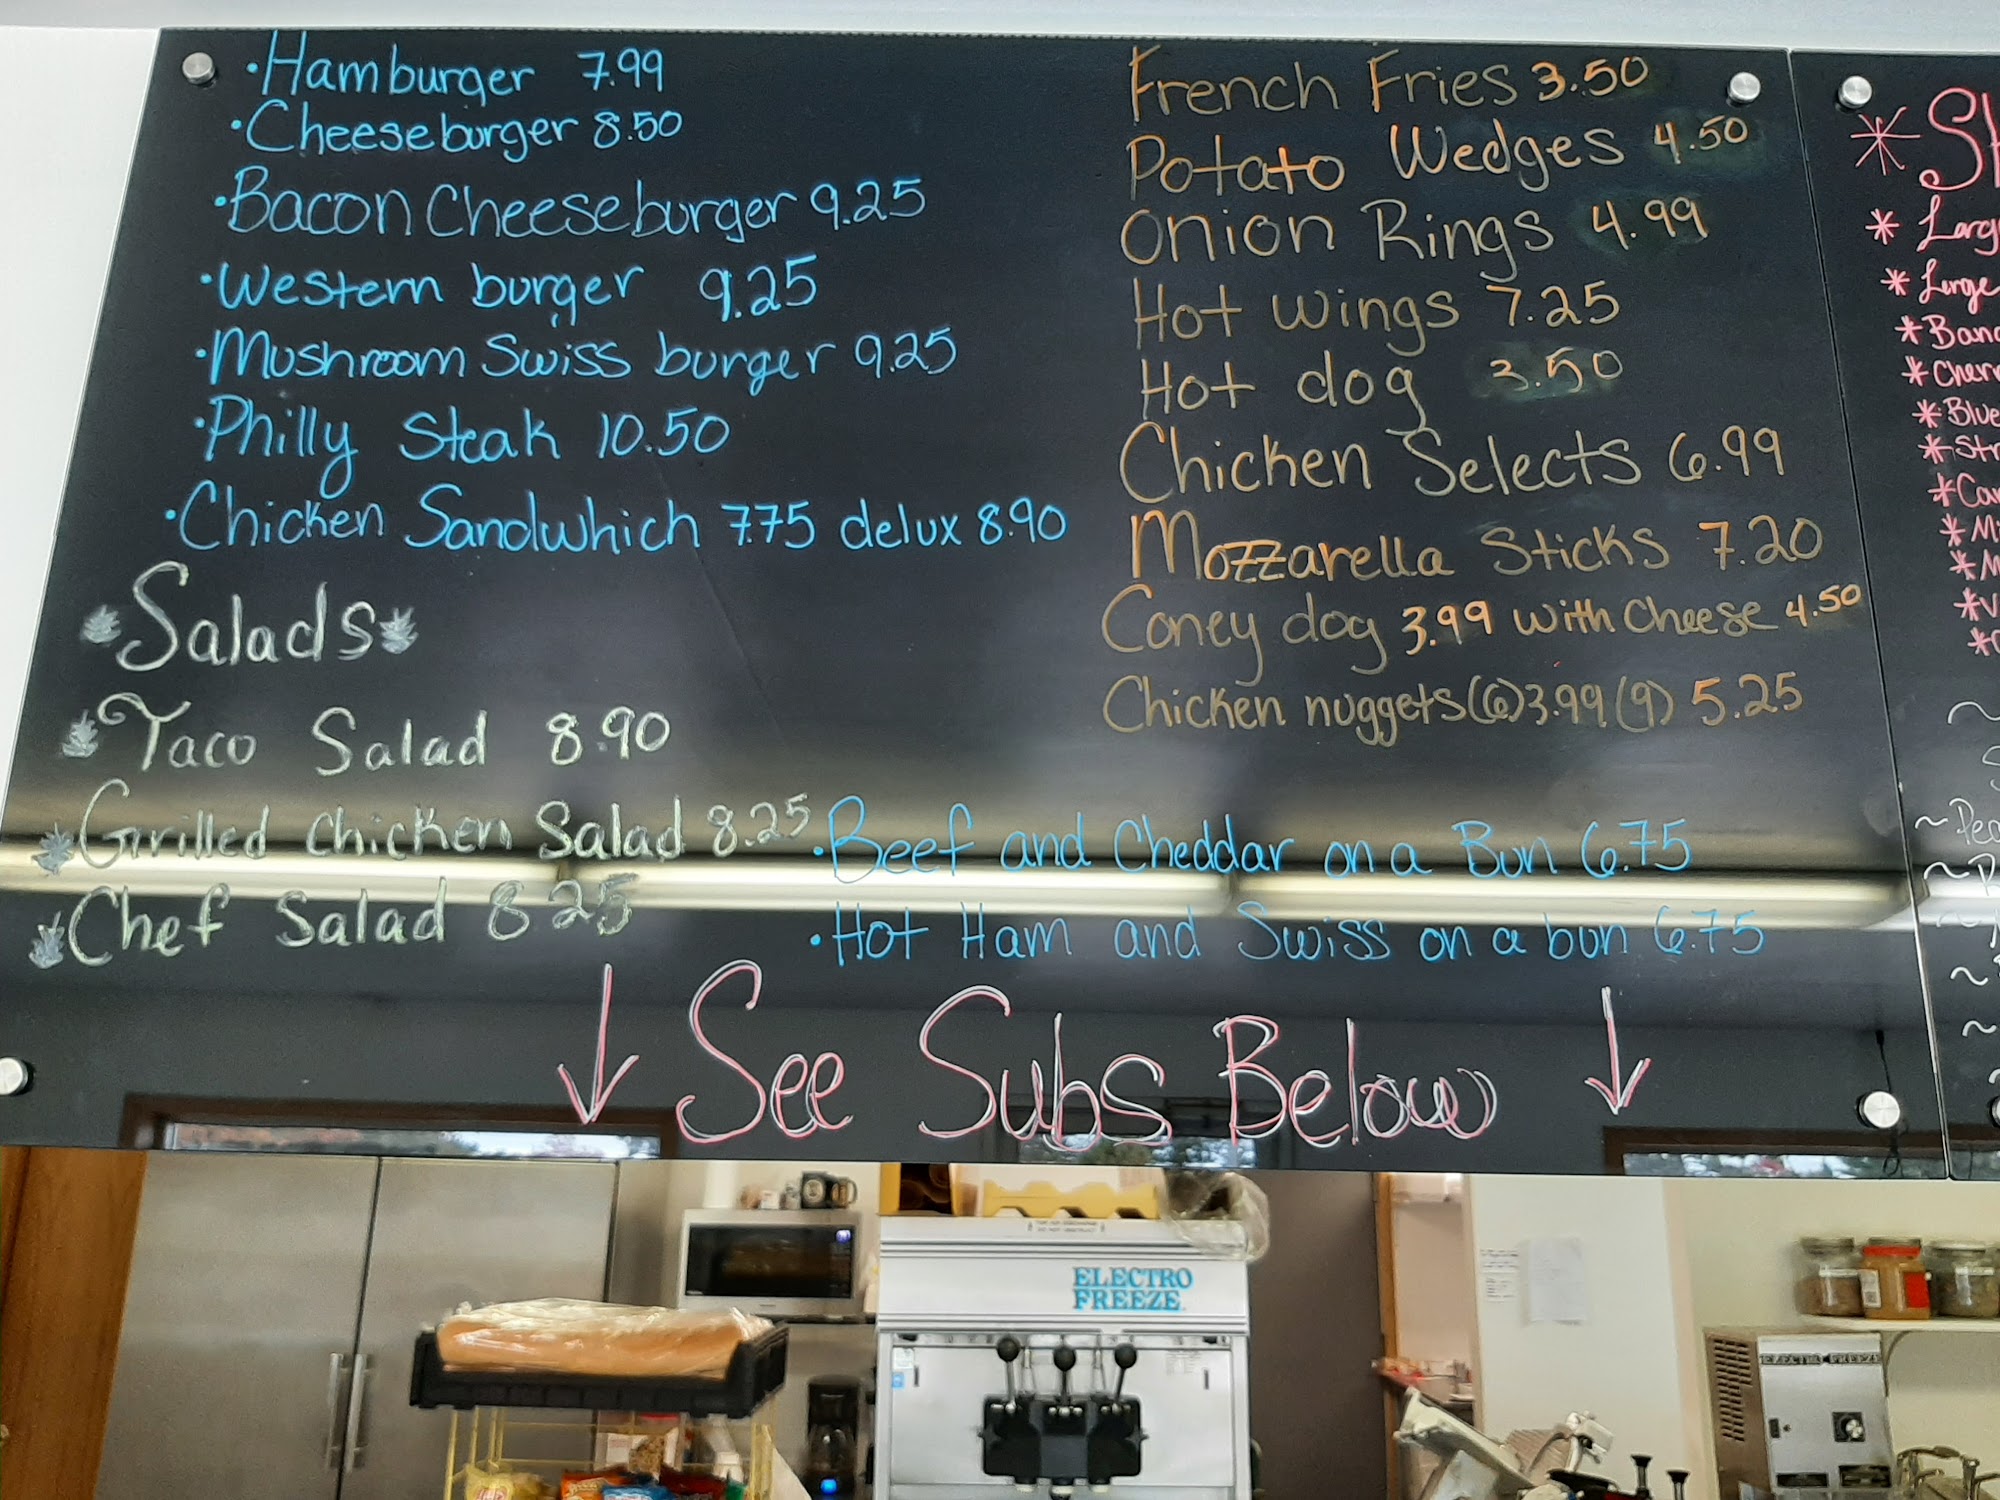 Hamburger 7.99
Cheeseburger 8.50
Bacon Cheeseburger 9.25
Western burger 9.25
Mushroom Swiss burger 9.25
Philly Steak 10.50
Chicken Sandwhich 7.75 delux 8.90
Salads
Taco Salad 8.90
Grilled Chicken Salad 8.25
Chef Salad 8.25
French Fries 3.50
Potato Wedges 4.50
Onion Rings 4.99
Hot wings 7.25
Hot dog 3.50
Chicken Selects 6.99
Mozzarella Sticks 7.20
Coney dog 3.99 with Cheese 4.50
Chicken nuggets (6) 3.99 (9) 5.25
Beef and Cheddar on a Bun 6.75
Hot Ham and Swiss on a bun 6.75
See Subs Below
ELECTRO
FREEZE
ELECTRO FREEZE